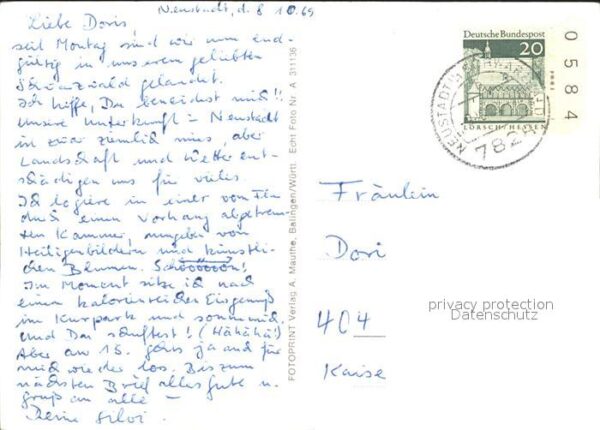 Neustadt, d. 8 10.69
Liebe Doris!
seit Montag sind wir nun end-
gültig in unserem geliebten
Schwarzwald gelandet.
Ich hoffe, Du beneidest mich!!
Unsere Unterkunft in Neustadt
ist zwar ziemlich mies, aber
Landschaft und Wetter ent-
schädigen uns für vieles.
Ich logiere in einer vom Flur
durch einen Vorhang abgetrenn-
ten Kammer, umgeben von
Heiligenbildern und künstli-
chen Blumen. Schööööön!
Im Moment sitze ich nach
einem kalorienreichen Eisgenuß
im Kurpark und
und Du schuftest! (Hähähä!)
Aber am 15. geht's ja auch für
mich wieder los. Bis zum
nächsten Brief alles gute u.
gruß an alle –
Deine
FOTOPRINT Verlag A. Mauthe, Balingen/Württ. Echt Foto Nr. A 311136
Deutsche Bundespost
20
LORSCH/HESSEN
0584
NEUSTADT
782
Fräulein
Dori
404
Kaise
privacy protection
Datenschutz